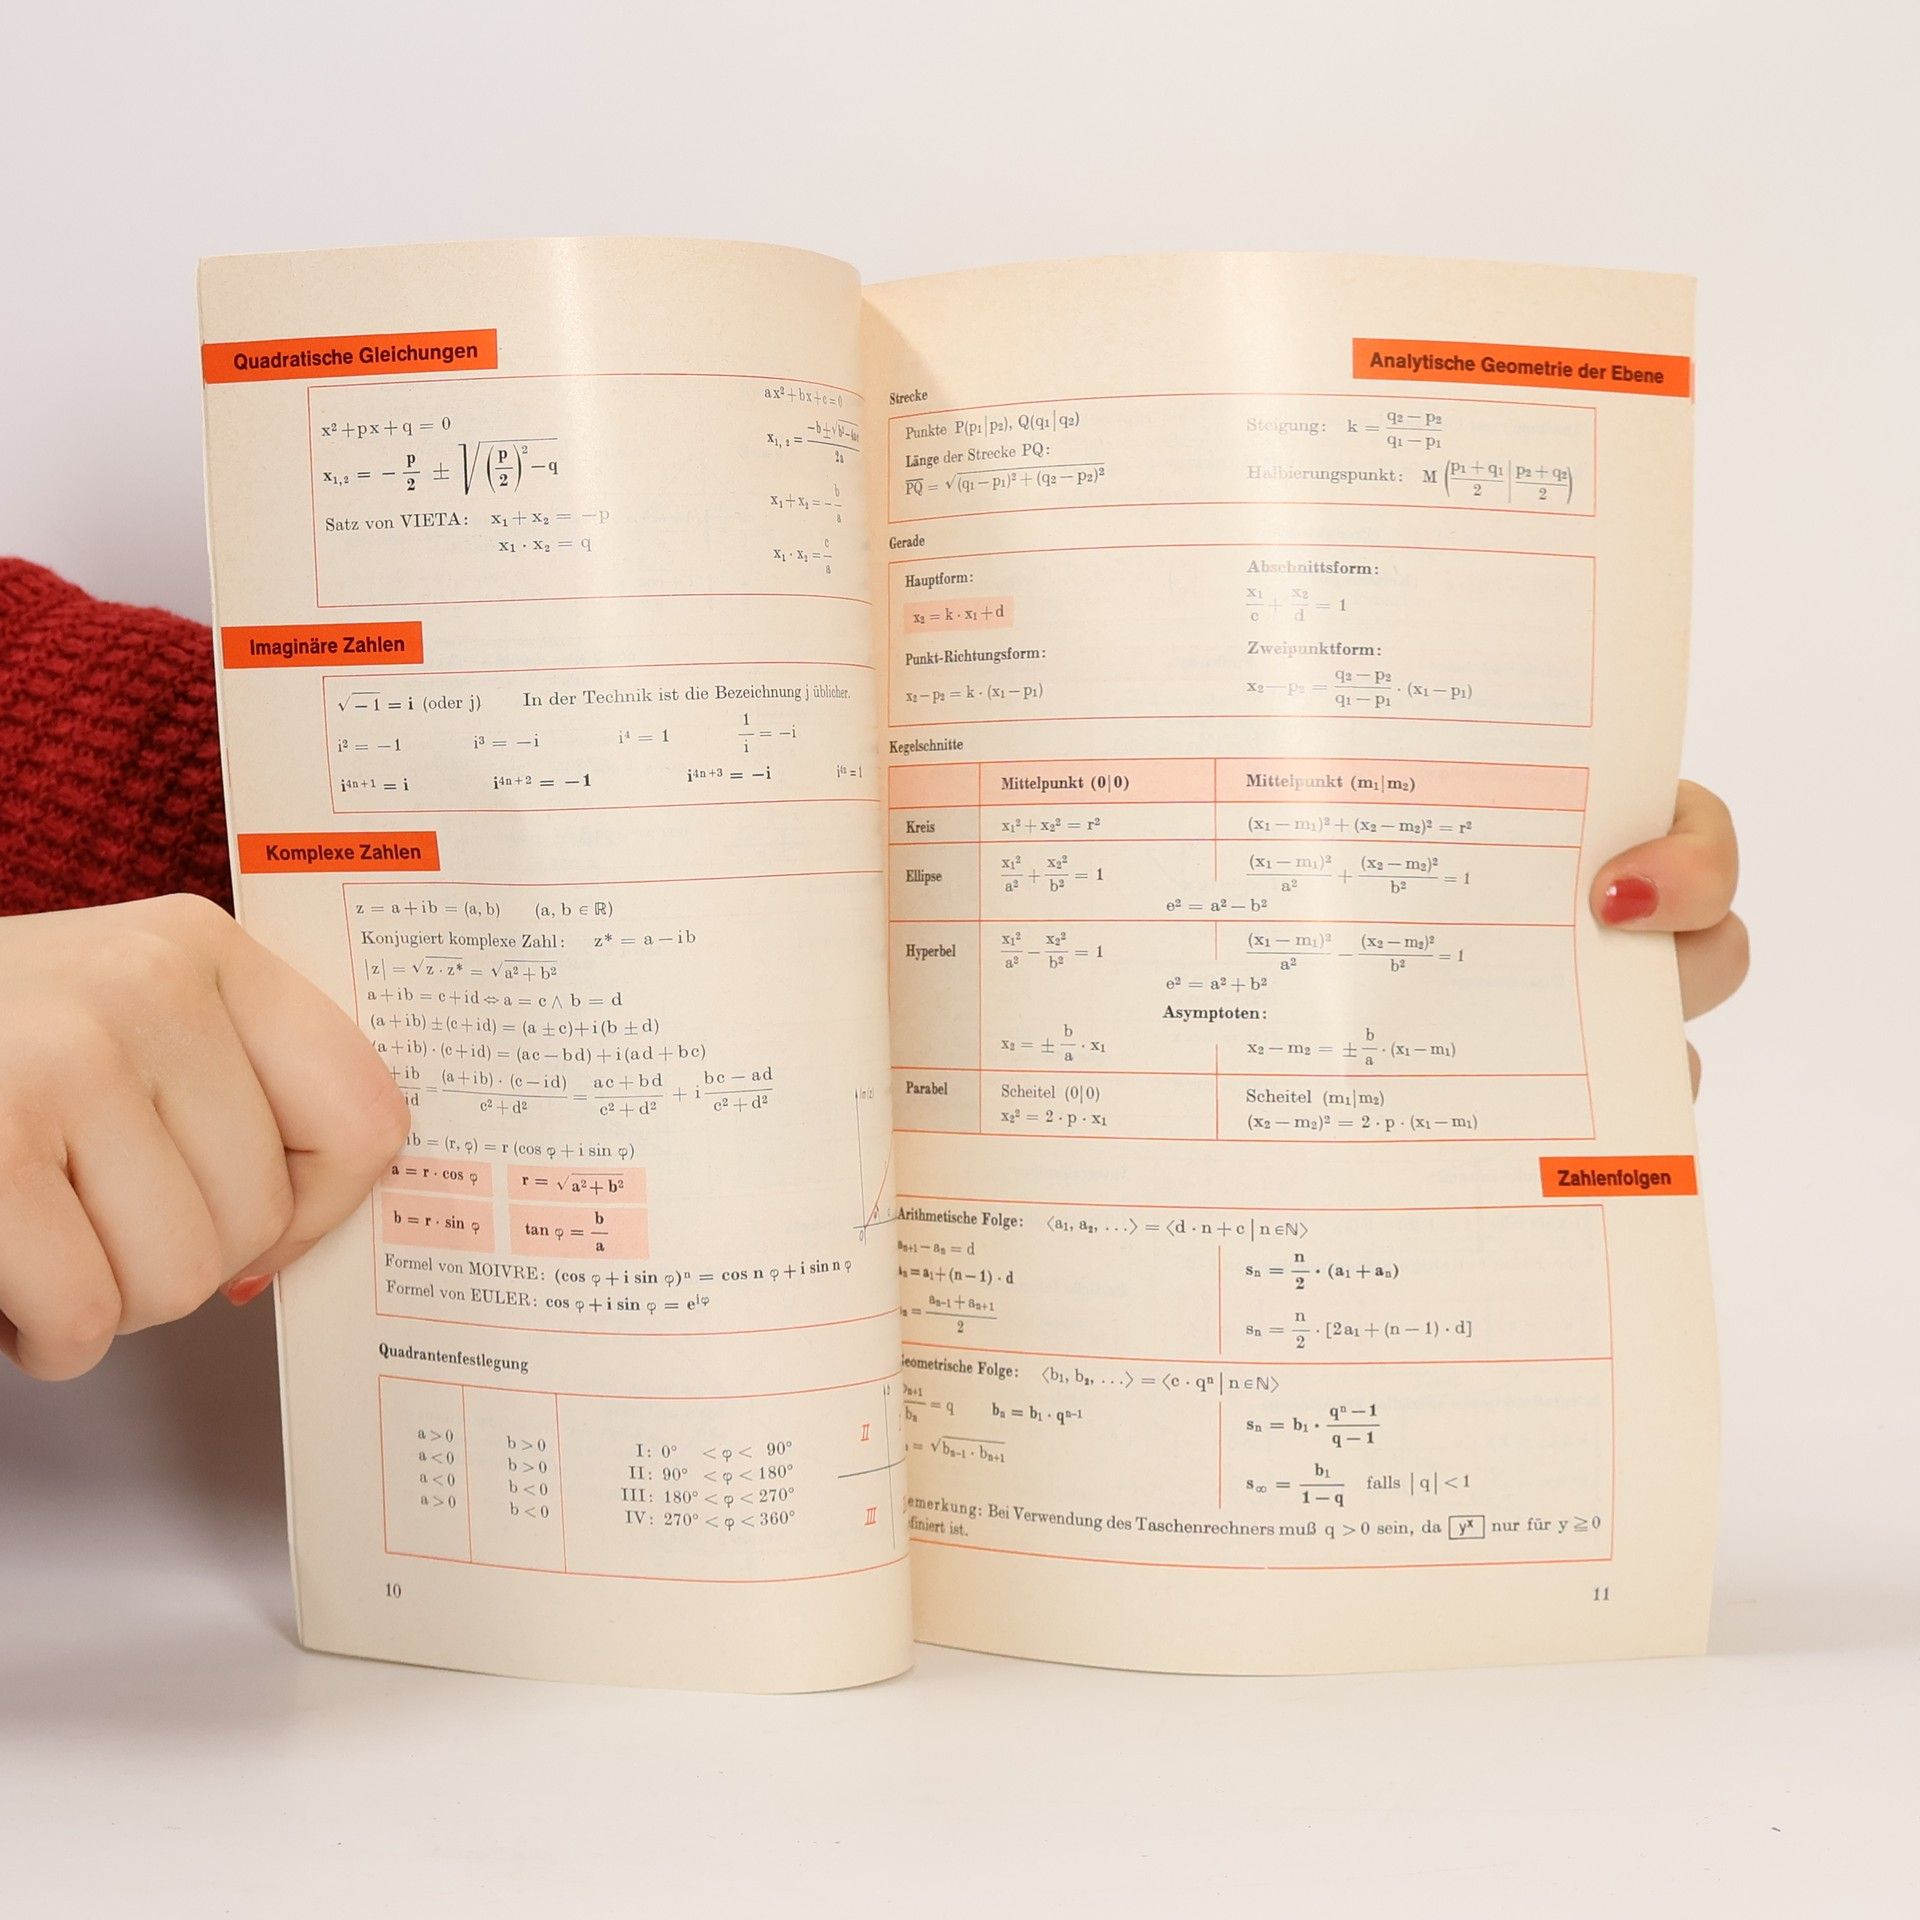 Quadratische Gleichungen
ax²+bx+c=0
x²+px+q = 0
x₁,₂ = −p/2 ± √((p/2)²−q)
x₁,₂ = 
Satz von VIETA: x₁+x₂ = −p
x₁+x₂=−b/a
x₁·x₂ = q
x₁·x₂=c/a
Imaginäre Zahlen
√−1 = i (oder j) In der Technik ist die Bezeichnung j üblicher.
i² = −1 i³ = −i i⁴ = 1 1/i = −i
i⁴ⁿ⁺¹ = i i⁴ⁿ⁺² = −1 i⁴ⁿ⁺³ = −i i⁴ⁿ=1
Komplexe Zahlen
z = a+ib = (a, b) (a, b ∈ ℝ)
Konjugiert komplexe Zahl: z* = a−ib
|z| = √(z·z*) = √(a²+b²)
a+ib = c+id ⇔ a = c ∧ b = d
(a+ib)±(c+id) = (a±c)+i(b±d)
(a+ib)·(c+id) = (ac−bd)+i(ad+bc)
+ib/id = (a+ib)·(c−id)/(c²+d²) = (ac+bd)/(c²+d²) + i (bc−ad)/(c²+d²)
ib = (r, φ) = r (cos φ+i sin φ)
a = r·cos φ r = √(a²+b²)
b = r·sin φ tan φ = b/a
Formel von MOIVRE: (cos φ+i sin φ)ⁿ = cos n φ+i sin n φ
Formel von EULER: cos φ+i sin φ = e^(iφ)
Quadrantenfestlegung
a>0 b>0 I: 0° <φ< 90°
a<0 b>0 II: 90° <φ<180°
a<0 b<0 III: 180°<φ<270°
a>0 b<0 IV: 270°<φ<360°
II
III
10
Analytische Geometrie der Ebene
Strecke
Punkte P(p₁|p₂), Q(q₁|q₂) Steigung: k = (q₂−p₂)/(q₁−p₁)
Länge der Strecke PQ:
PQ = √((q₁−p₁)²+(q₂−p₂)²) Halbierungspunkt: M ((p₁+q₁)/2 | (p₂+q₂)/2)
Gerade
Hauptform: Abschnittsform:
x₂ = k·x₁+d x₁/c + x₂/d = 1
Punkt-Richtungsform: Zweipunktform:
x₂−p₂ = k·(x₁−p₁) x₂−p₂ = (q₂−p₂)/(q₁−p₁)·(x₁−p₁)
Kegelschnitte
Mittelpunkt (0|0) Mittelpunkt (m₁|m₂)
Kreis x₁²+x₂² = r² (x₁−m₁)²+(x₂−m₂)² = r²
Ellipse x₁²/a² + x₂²/b² = 1 (x₁−m₁)²/a² + (x₂−m₂)²/b² = 1
e² = a²−b²
Hyperbel x₁²/a² − x₂²/b² = 1 (x₁−m₁)²/a² − (x₂−m₂)²/b² = 1
e² = a²+b²
Asymptoten:
x₂ = ± b/a · x₁ x₂−m₂ = ± b/a·(x₁−m₁)
Parabel Scheitel (0|0) Scheitel (m₁|m₂)
x₂² = 2·p·x₁ (x₂−m₂)² = 2·p·(x₁−m₁)
Zahlenfolgen
Arithmetische Folge: ⟨a₁, a₂, ...⟩ = ⟨d·n+c | n∈ℕ⟩
aₙ₊₁−aₙ = d sₙ = n/2 · (a₁+aₙ)
aₙ=a₁+(n−1)·d
= (aₙ₋₁+aₙ₊₁)/2 sₙ = n/2 · [2a₁+(n−1)·d]
Geometrische Folge: ⟨b₁, b₂, ...⟩ = ⟨c·qⁿ | n∈ℕ⟩
bₙ₊₁/bₙ = q bₙ = b₁·qⁿ⁻¹ sₙ = b₁·(qⁿ−1)/(q−1)
= √(bₙ₋₁·bₙ₊₁) s∞ = b₁/(1−q) falls |q|<1
emerkung: Bei Verwendung des Taschenrechners muß q>0 sein, da yˣ nur für y≧0
finiert ist.
11